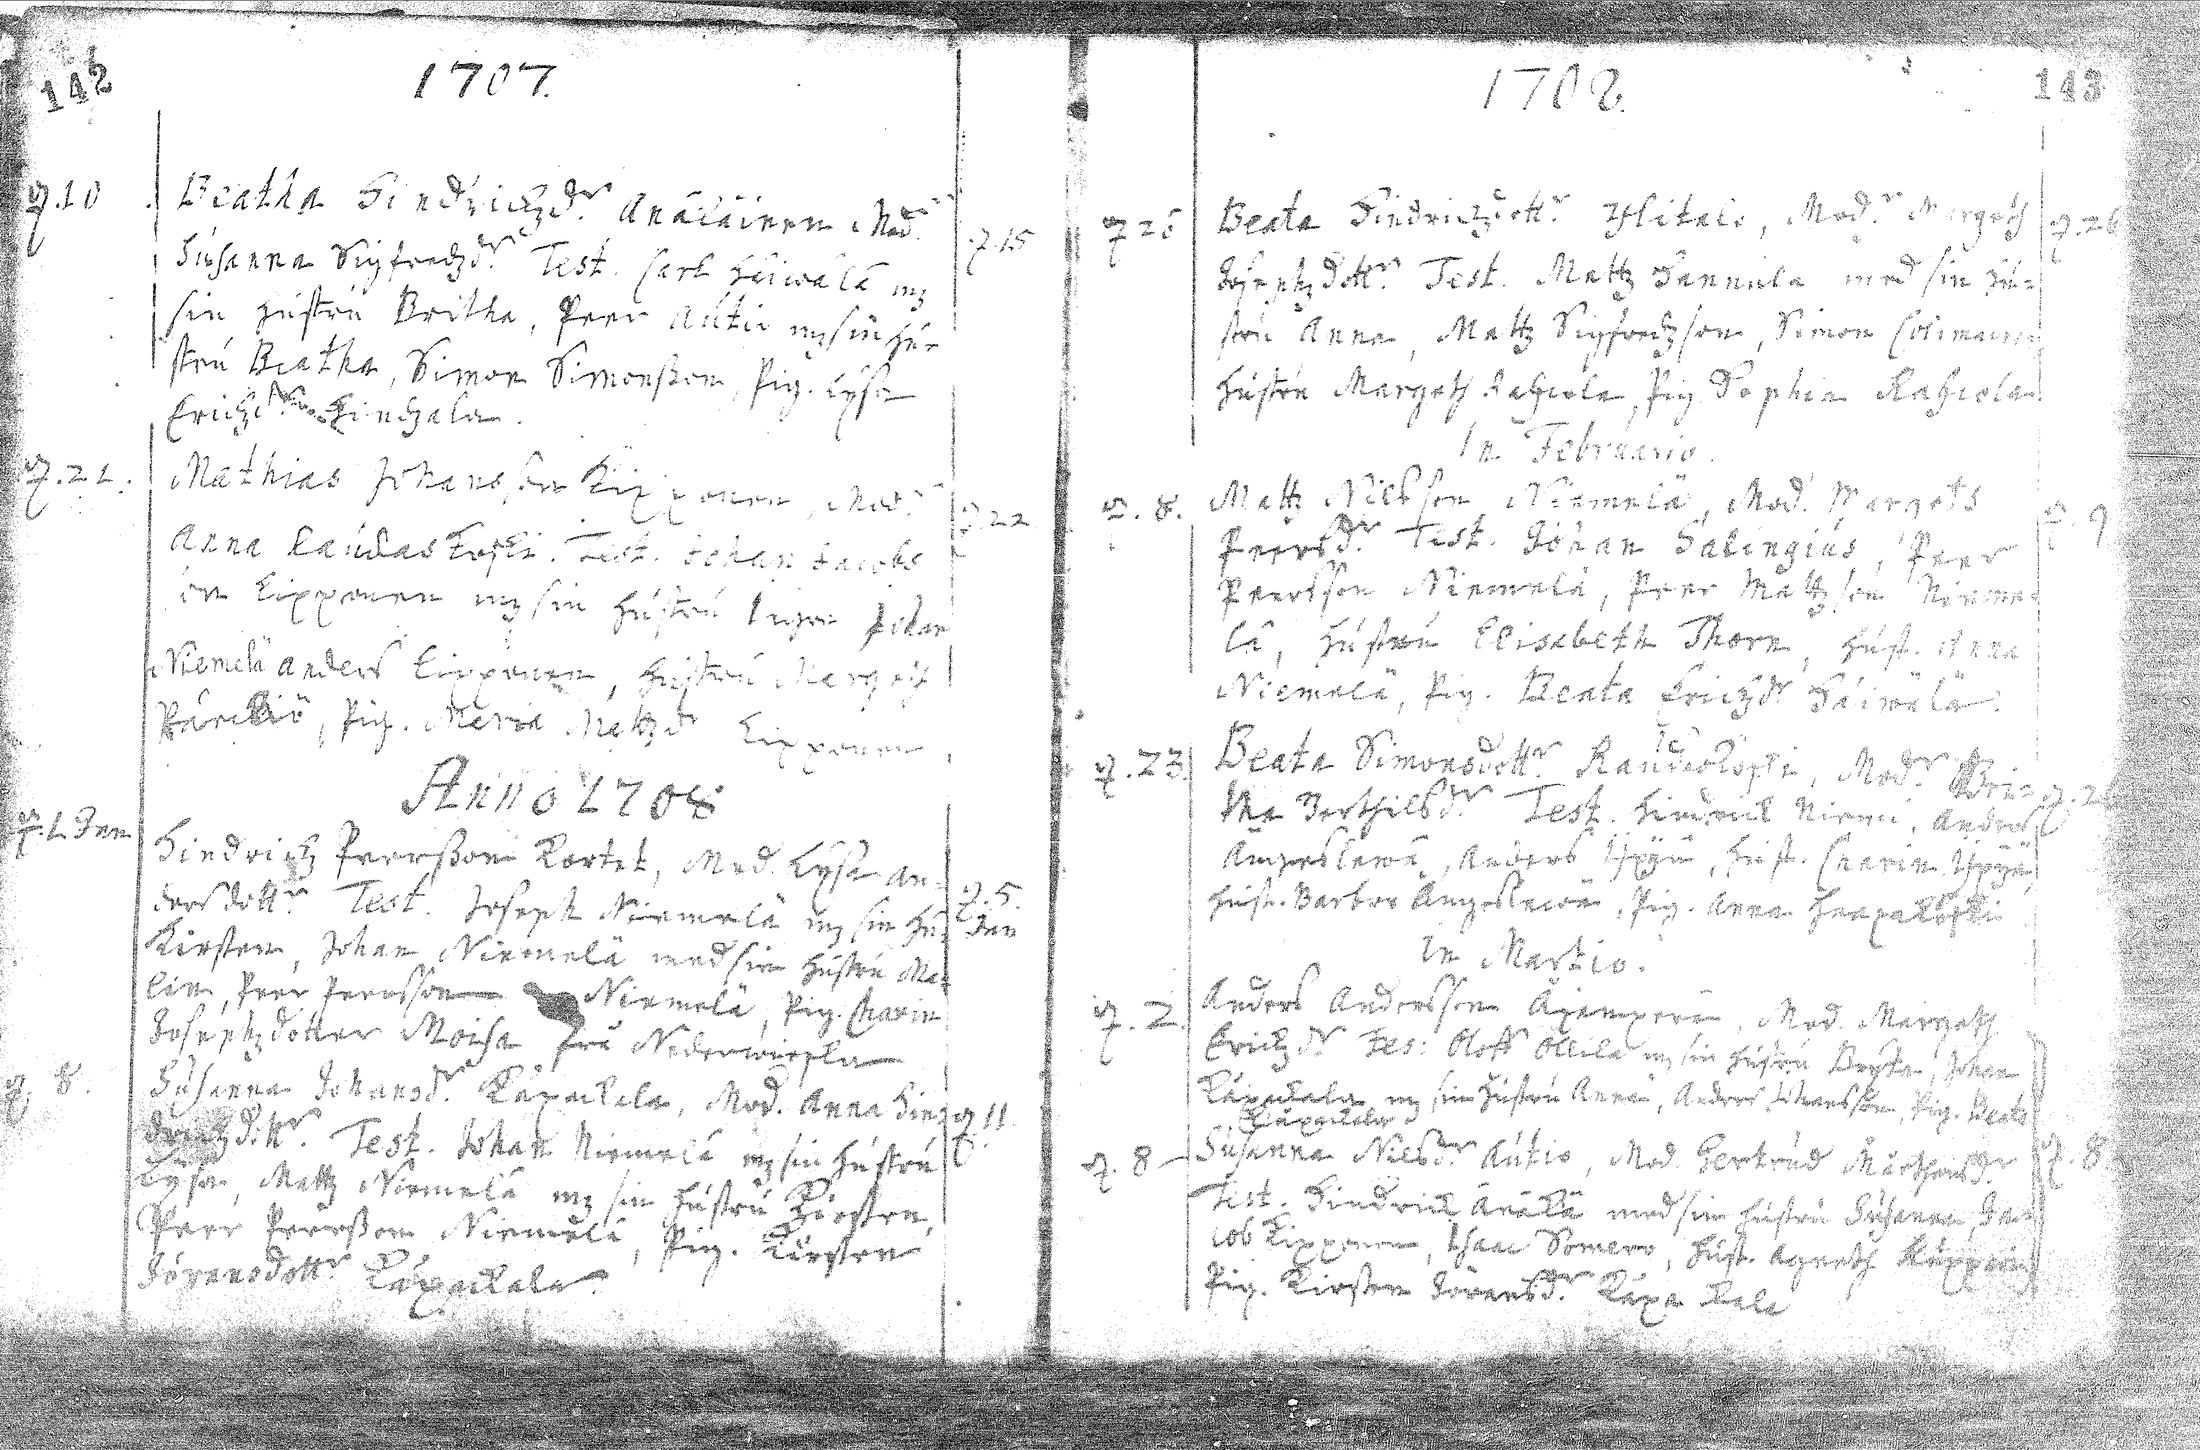 142
1707.
d. 10
Beatha Hindrichzdr. Anäläinen Modr.
Susanna Sigfredzdr. Test. Carl Häiwälä mz
d. 15
sin hustru Britha, Peer Autio mz sin hu-
stru Beatha, Simon Simonsson, Pig. Lysa
Erichzdr. Hindzala.
d. 21.
Mathias Johansson Kipponen, Modr.
Anna Laudas Koski. Test. Johan Jacobs
d. 22
son Kipponen mz sin hustru Johan
Niemelä Anders Kipponen, hustru Margeth
Pig. Maria Mattzdr Kipponen
Anno 1708
d. 1 Jan
Hindrichz Peersson Kortet, Mod. Lysa An-
dersdottr. Test. Joseph Niemelä mz sin hu-
d. 5. Jan
Kirsten, Johan Niemelä med sin hustru Ma-
lin, Peer Peersson Niemelä, Pig. Charin
Josephzdotter Moisa frå Nederwiepla
d. 8.
Susanna Johansdr. Käpäkala, Mod. Anna Hin-
drichzdottr. Test. Johan Niemelä mz sin hustru
d. 11.
Lysa, Mattz Niemelä mz sin hustru Kirsten,
Peer Peersson Niemelä, Pig. Kirsten
Göransdottr Käpäkala.
1708.
143
d. 26
Beata Hindrichzdottr. Ylitalo, Modr. Margeth
d. 26
Josephzdottr. Test. Mattz Hannula med sin hu-
stru Anna, Mattz Sigfredzson, Simon
hustru Margeth Rahiola, Pig Sophia Rahiola
In Februario.
d. 8.
Mattz Nilsson Niemelä, Mod. Margeta
d. 9
Peersdr. Test. Johan Salingius, Peer
Peersson Niemelä, Peer Mattzson Nieme-
lä, hustru Elisabeth Thorn, hust. Anna
Niemelä, Pig. Beata Erichzdr. Häiwälä.
d. 23.
Beata Simonsdottr. Modr. Bri-
tha Berthilsdr. Test. Hindrich Niemi, Anders
Ängeslewä, Anders Yppyä, hust. Charin Yppyä,
hust. Barbro Ängeslewä, Pig. Anna Haapakoski
In Martio.
d. 2.
Anders Andersson Äijänperä, Mod. Margeth
Erichzdr. Tes: Oloff Ollila mz sin hustru Bryta, Johan
Käpäkala mz sin hustru Anna, Anders Johansson, Pig. Beata
Käpäkala
d. 8
Susanna Nilsdr. Autio, Mod. Gertrud Mårthensdr.
d. 8
Test. Hindrick Änälä med sin hustru Susanna, Ja-
cob Kipponen, Isaac Somero, hust. Agneth
Pig. Kirsten Göransdr. Käpäkala